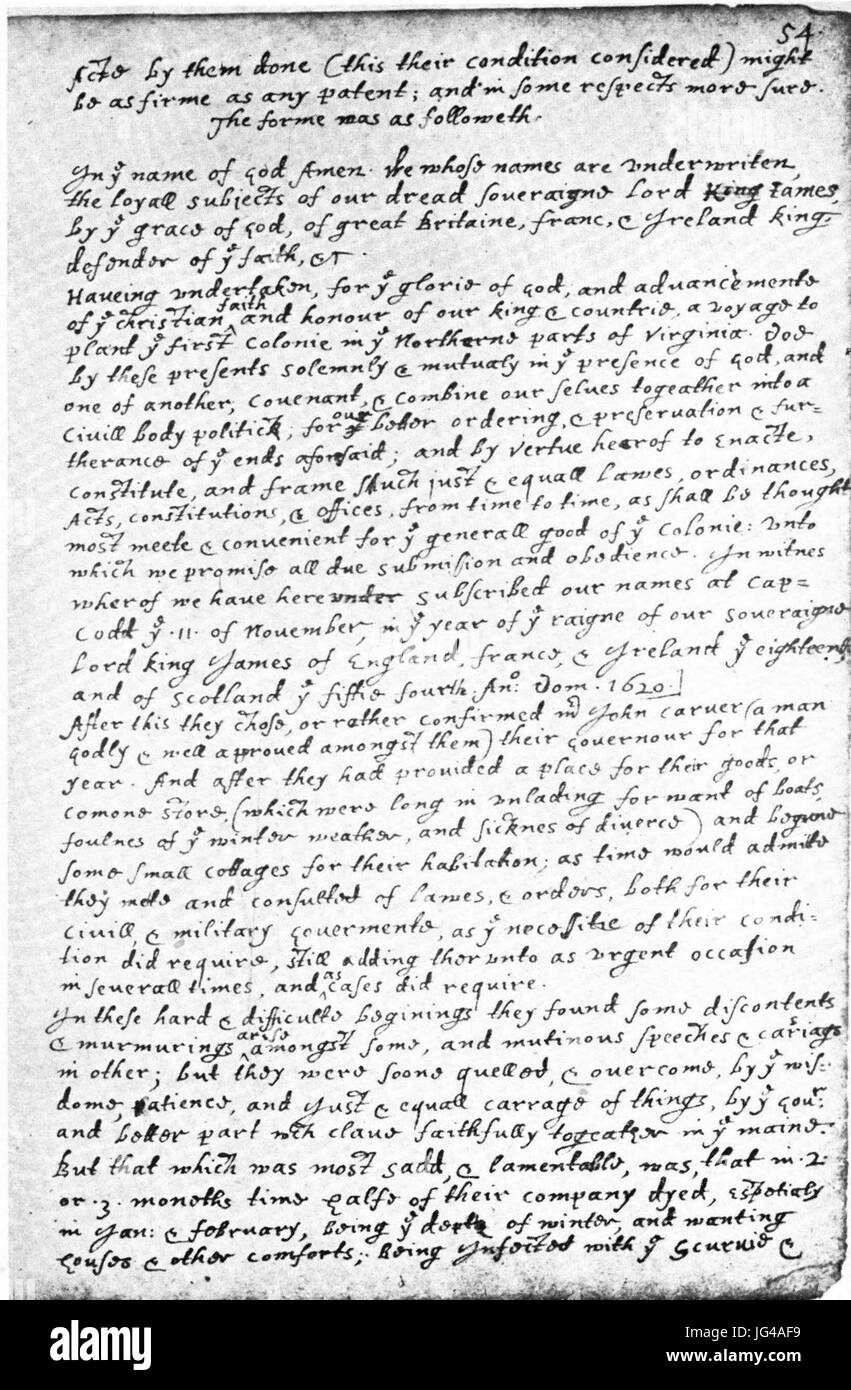 54
Acts by them done (this their condition considered) might
be as firme as any patent; and in some respects more sure.
The forme was as followeth.
In yᵉ name of God Amen. We whose names are underwriten,
the loyall subjects of our dread soveraigne Lord King Iames,
by yᵉ grace of God, of great Britaine, franc, & Ireland king,
defender of yᵉ faith, &c.
Haveing undertaken, for yᵉ glorie of God, and advancemente
of yᵉ christian faith and honour of our king & countrie, a voyage to
plant yᵉ first colonie in yᵉ Northerne parts of Virginia. Doe
by these presents solemnly & mutualy in yᵉ presence of God, and
one of another, covenant, & combine our selves togeather into a
Civill body politick; for our better ordering, & preservation & fur=
therance of yᵉ ends aforsaid; and by vertue hearof to Enacte,
constitute, and frame shuch just & equall Lawes, ordinances,
Acts, constitutions, & offices, from time to time, as shall be thought
most meete & convenient for yᵉ generall good of yᵉ Colonie: unto
which we promise all due submission and obedience. In witnes
wherof we have hereunder subscribed our names at Cap=
Codd yᵉ .11. of November, in yᵉ year of yᵉ raigne of our soveraigne
Lord king James of England, france, & Ireland yᵉ eighteenth
and of Scotland yᵉ fiftie fourth. Anº. Dom. 1620.]
After this they chose, or rather confirmed mʳ John Carver (a man
godly & well approved amongst them) their Governour for that
year. And after they had provided a place for their goods, or
comone store, (which were long in unlading for want of boats,
foulnes of yᵉ winter weather, and sicknes of diverce) and begune
some small cottages for their habitation; as time would admitte
they mete and consulted of lawes, & orders, both for their
civill, & military Govermente, as yᵉ necessitie of their condi=
tion did require, still adding therunto as urgent occasion
in severall times, and as cases did require.
In these hard & difficulte beginings they found some discontents
& murmurings arise amongst some, and mutinous speeches & cariags
in other; but they were soone quelled, & overcome, by yᵉ wis=
dome, patience, and just & equall carrage of things, by yᵉ Govʳ.
and better part wᶜʰ clave faithfully togeather in yᵉ maine.
But that which was most sadd, & lamentable, was, that in .2.
or .3. moneths time halfe of their company dyed, espetialy
in Jan: & february, being yᵉ depth of winter, and wanting
houses & other comforts; being Infected with yᵉ Scurvie &
alamy
Image ID: JG4AF9
www.alamy.com